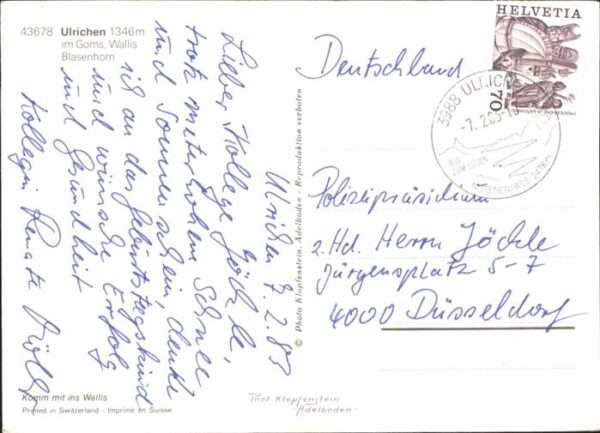 43678 Ulrichen 1346m
im Goms, Wallis
Blasenhorn
Ulrichen 7.2.85
Lieber Kollege Jöckle,
trotz meterhohem Schnee
und Sonnenschein, denke
ich an das Geburtstagskind
und wünsche Erfolg
und Gesundheit
Kollegin Renate
Komm mit ins Wallis
Printed in Switzerland - Imprimé en Suisse
© Photo Klopfenstein, Adelboden - Reproduktion verboten
HELVETIA
70
3988 ULRICHEN
-7.2.85-
Deutschland
Polizeipräsidium
z. Hd. Herrn Jöckle
Jürgensplatz 5-7
4000 Düsseldorf
Phot Klopfenstein
Adelboden